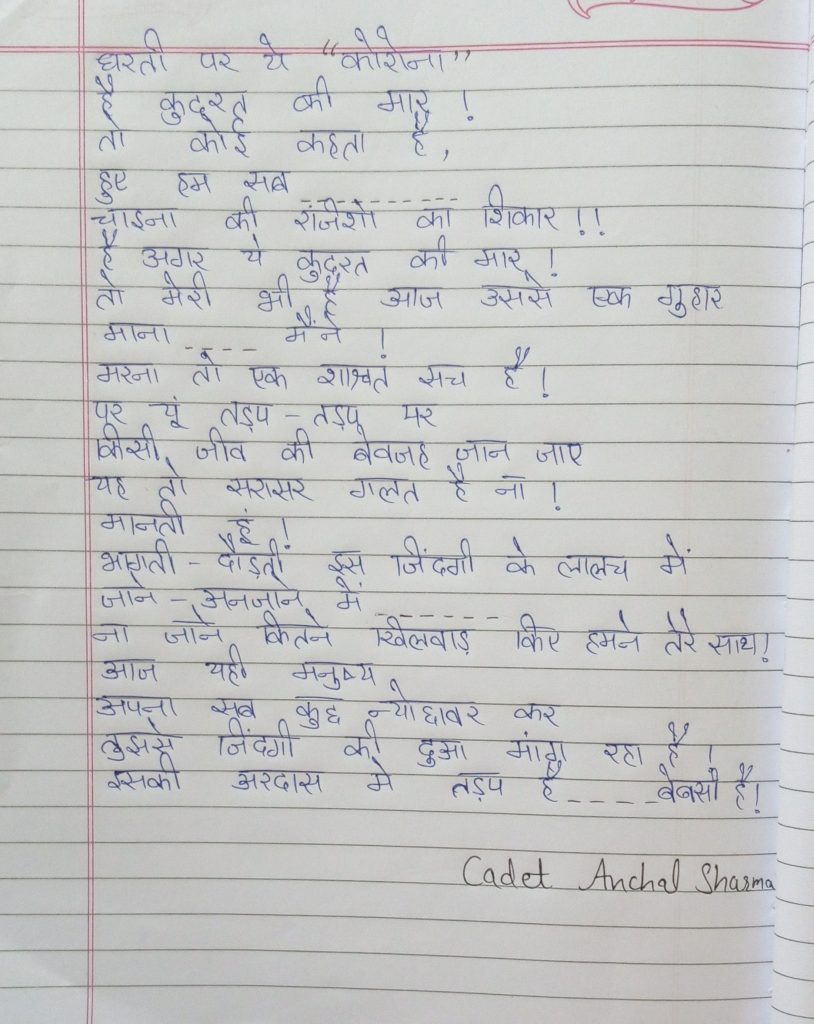 धरती पर ये "कोरोना"
है कुदरत की मार !
तो कोई कहता है,
हुए हम सब ----------
चाइना की रंजिशो का शिकार !!
है अगर ये कुदरत की मार !
तो मेरी भी है आज उससे एक गुहार
माना ---- मैंने !
मरना तो एक शाश्वत सच है !
पर यूं तड़प - तड़प मर
किसी जीव की बेवजह जान जाए
यह तो सरासर गलत है ना !
मानती हूं !
भागती - दौड़ती इस जिंदगी के लालच में
जाने - अनजाने में -------
ना जाने कितने खिलवाड़ किए हमने तेरे साथ!
आज यही मनुष्य
अपना सब कुछ न्योछावर कर
तुझसे जिंदगी की दुआ मांग रहा है !
इसकी अरदास मे तड़प है ---- बेबसी है!
Cadet Anchal Sharma